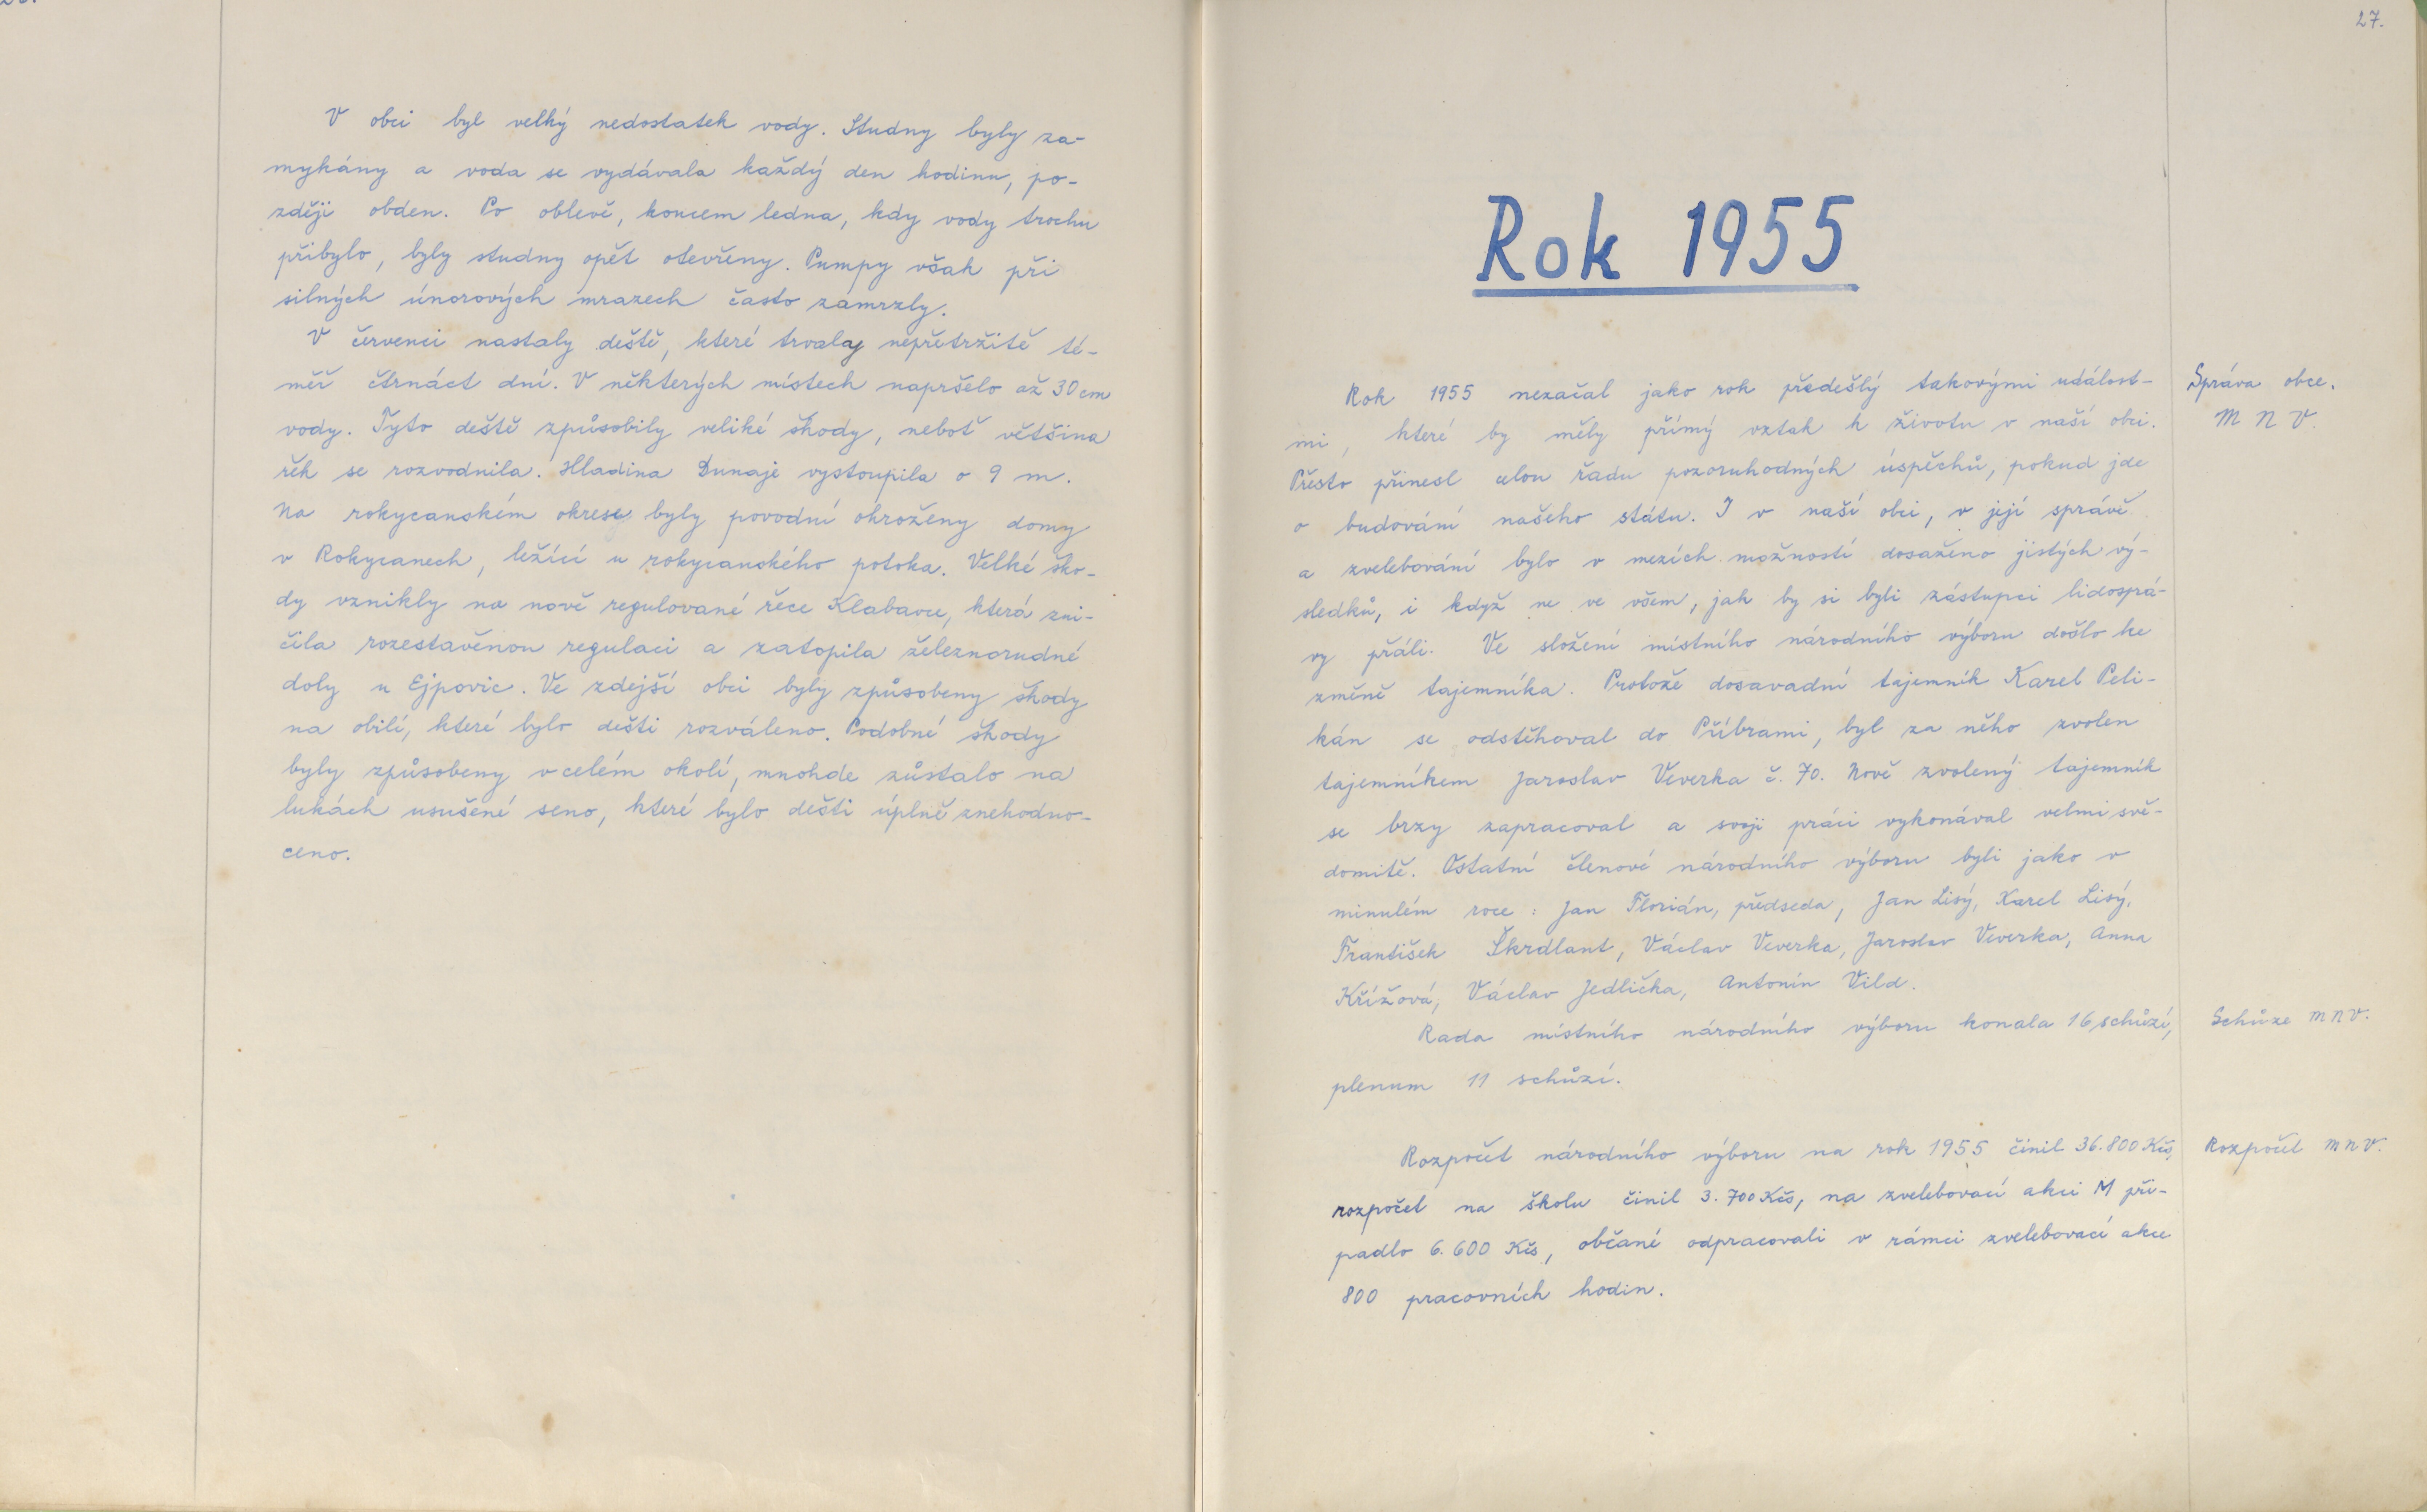 V obci byl velký nedostatek vody. Studny byly za-
mykány a voda se vydávala každý den hodinu, po-
zději obden. Po oblevě, koncem ledna, kdy vody trochu
přibylo, byly studny opět otevřeny. Pumpy však při
silných únorových mrazech často zamrzly.
V červenci nastaly deště, které trvaly nepřetržitě té-
měř čtrnáct dní. V některých místech napršelo až 30 cm
vody. Tyto deště způsobily veliké škody, neboť většina
řek se rozvodnila. Hladina Dunaje vystoupila o 9 m.
Na rokycanském okrese byly povodní ohroženy domy
v Rokycanech, ležící u rokycanského potoka. Velké ško-
dy vznikly na nově regulované řece Klabavce, která zni-
čila rozestavěnou regulaci a zatopila železnorudné
doly u Ejpovic. Ve zdejší obci byly způsobeny škody
na obilí, které bylo dešti rozváleno. Podobné škody
byly způsobeny v celém okolí, mnohde zůstalo na
lukách usušené seno, které bylo dešti úplně znehodno-
ceno.
27.
Rok 1955
Rok 1955 nezačal jako rok předešlý takovými událost-
mi, které by měly přímý vztah k životu v naší obci.
Přesto přinesl celou řadu pozoruhodných úspěchů, pokud jde
o budování našeho státu. I v naší obci, v její správě
a zvelebování bylo v mezích možností dosaženo jistých vý-
sledků, i když ne ve všem, jak by si byli zástupci lidosprá-
vy přáli. Ve složení místního národního výboru došlo ke
změně tajemníka. Protože dosavadní tajemník Karel Peli-
kán se odstěhoval do Příbrami, byl za něho zvolen
tajemníkem Jaroslav Veverka č. 70. Nově zvolený tajemník
se brzy zapracoval a svoji práci vykonával velmi svě-
domitě. Ostatní členové národního výboru byli jako v
minulém roce: Jan Florián, předseda, Jan Lisý, Karel Lisý,
František Škrdlant, Václav Veverka, Jaroslav Veverka, Anna
Křížová, Václav Jedlička, Antonín Vild.
Rada místního národního výboru konala 16 schůzí,
plenum 11 schůzí.
Rozpočet národního výboru na rok 1955 činil 36.800 Kčs,
rozpočet na školu činil 3.700 Kčs, na zvelebovací akci M při-
padlo 6.600 Kčs, občané odpracovali v rámci zvelebovací akce
800 pracovních hodin.
Správa obce.
M N V.
Schůze MNV.
Rozpočet MNV.